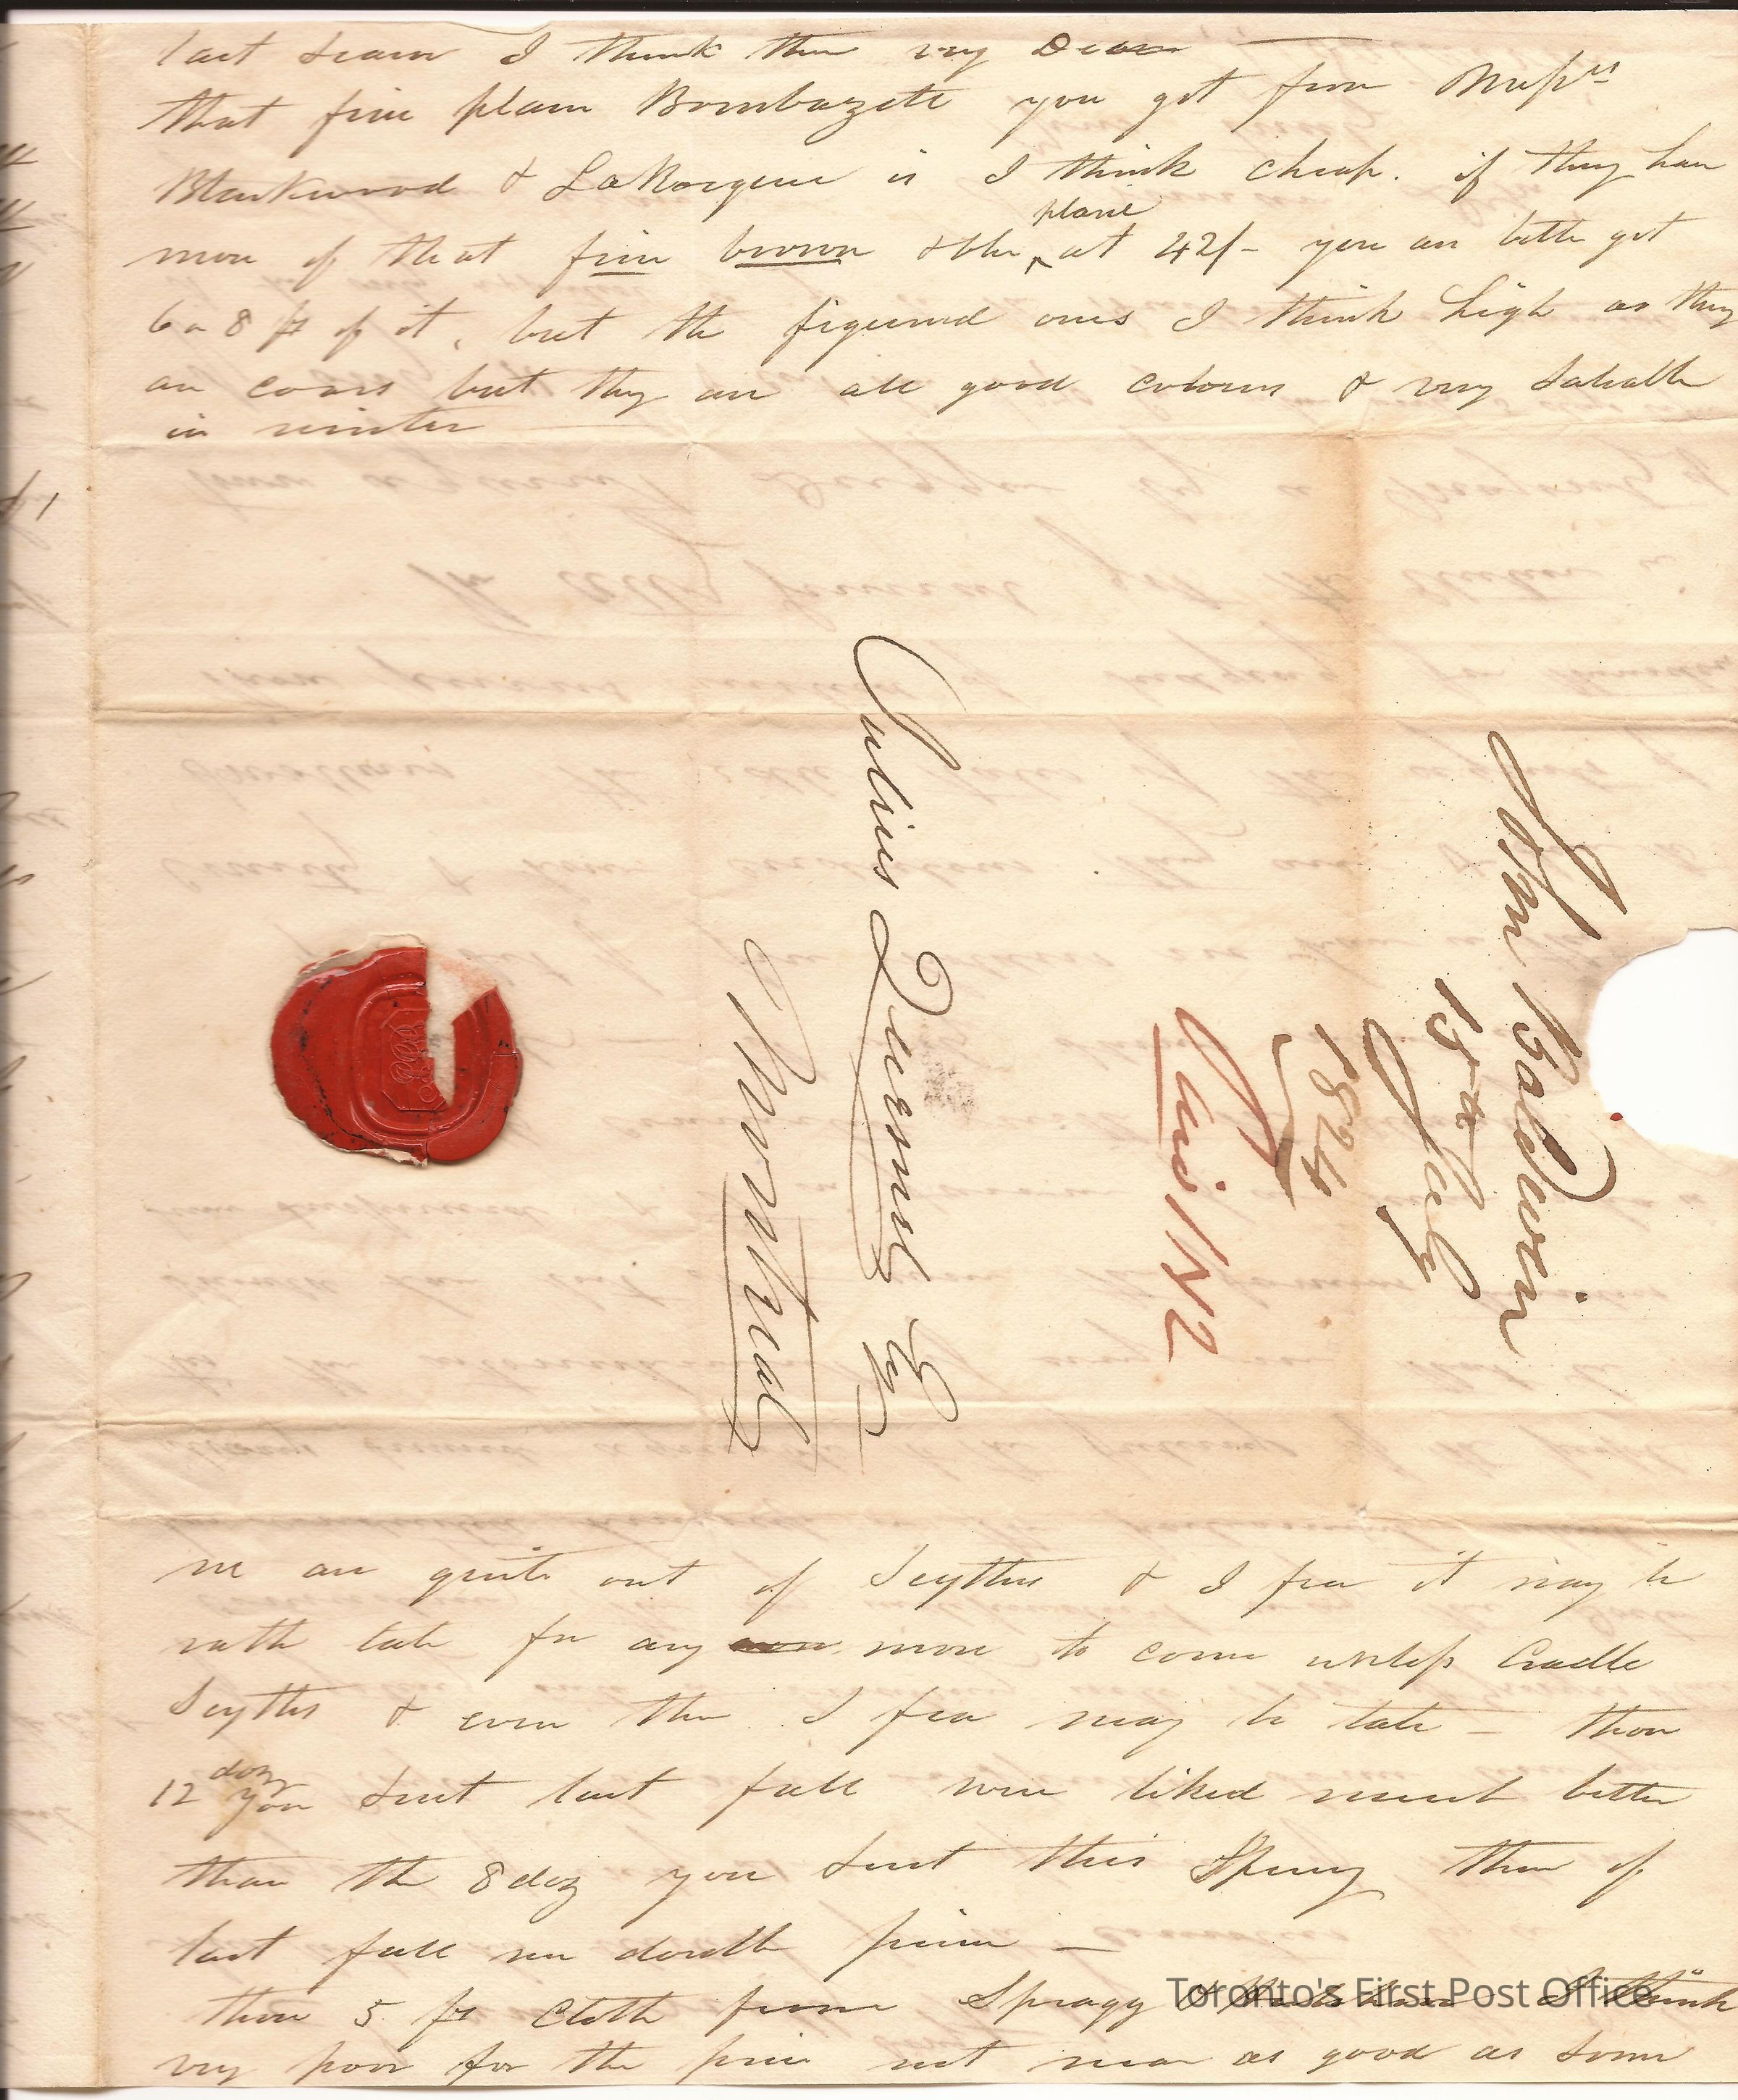 last
I think them very Dear
that fine plain Bombazett you got from Messrs
Blackwood & LaRocque is I think cheap. if they have
more of that fine brown & blue plain at 42/- you an better get
6 or 8 ps of it, but the figured ones I think high as they
are coars but they are all good colours & very saleable
in winter
Julius Quesnel Esqr
Montreal
Paid N2
John Baldwin
15th July
1824
we are quite out of Scythes & I fear it may be
rather late for any more to come unless Cradle
Scythes & even then I fear may be late – those
12 doz you sent last fall were liked much better
than the 8 doz you sent this Spring them of
last fall were double prime –
those 5 ps Cloth from Spragg & Hutchinson I think
very poor for the price not near as good as some
Toronto's First Post Office